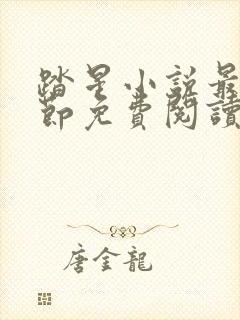 踏星小說最
節免費閱讀
唐金龍